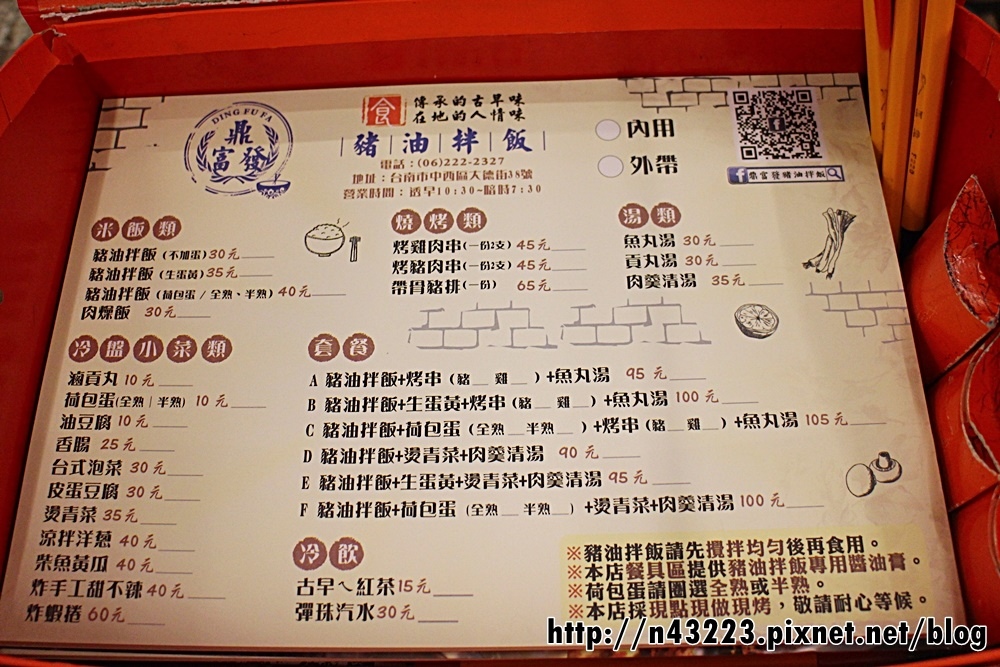 DING FU FA
鼎富發
食
傳承的古早味
在地的人情味
豬油拌飯
電話:(06)222-2327
地址:台南市中西區大德街38號
營業時間:透早10:30~暗時7:30
內用
外帶
鼎富發豬油拌飯
米飯類
豬油拌飯 (不加蛋) 30元____
豬油拌飯 (生蛋黃) 35元____
豬油拌飯 (荷包蛋 / 全熟、半熟) 40元____
肉燥飯 30元____
燒烤類
烤雞肉串(一份2支) 45元____
烤豬肉串(一份2支) 45元____
帶骨豬排(一份) 65元____
湯類
魚丸湯 30元____
貢丸湯 30元____
肉羹清湯 35元____
冷盤小菜類
滷貢丸 10元____
荷包蛋(全熟|半熟) 10元____
油豆腐 10元____
香腸 25元____
台式泡菜 30元____
皮蛋豆腐 30元____
燙青菜 35元____
涼拌洋蔥 40元____
柴魚黃瓜 40元____
炸手工甜不辣 40元____
炸蝦捲 60元____
套餐
A 豬油拌飯+烤串 (豬__ 雞__ )+魚丸湯 95元____
B 豬油拌飯+生蛋黃+烤串 (豬__ 雞__ )+魚丸湯 100元____
C 豬油拌飯+荷包蛋 (全熟__半熟__ )+烤串 (豬__ 雞__ )+魚丸湯 105元____
D 豬油拌飯+燙青菜+肉羹清湯 90元____
E 豬油拌飯+生蛋黃+燙青菜+肉羹清湯 95元____
F 豬油拌飯+荷包蛋 (全熟__ 半熟__) +燙青菜+肉羹清湯 100元____
冷飲
古早ㄟ紅茶 15元____
彈珠汽水 30元____
※豬油拌飯請先攪拌均勻後再食用。
※本店餐具區提供豬油拌飯專用醬油膏。
※荷包蛋請圈選全熟或半熟。
※本店採現點現做現烤,敬請耐心等候。
http://n43223.pixnet.net/blog